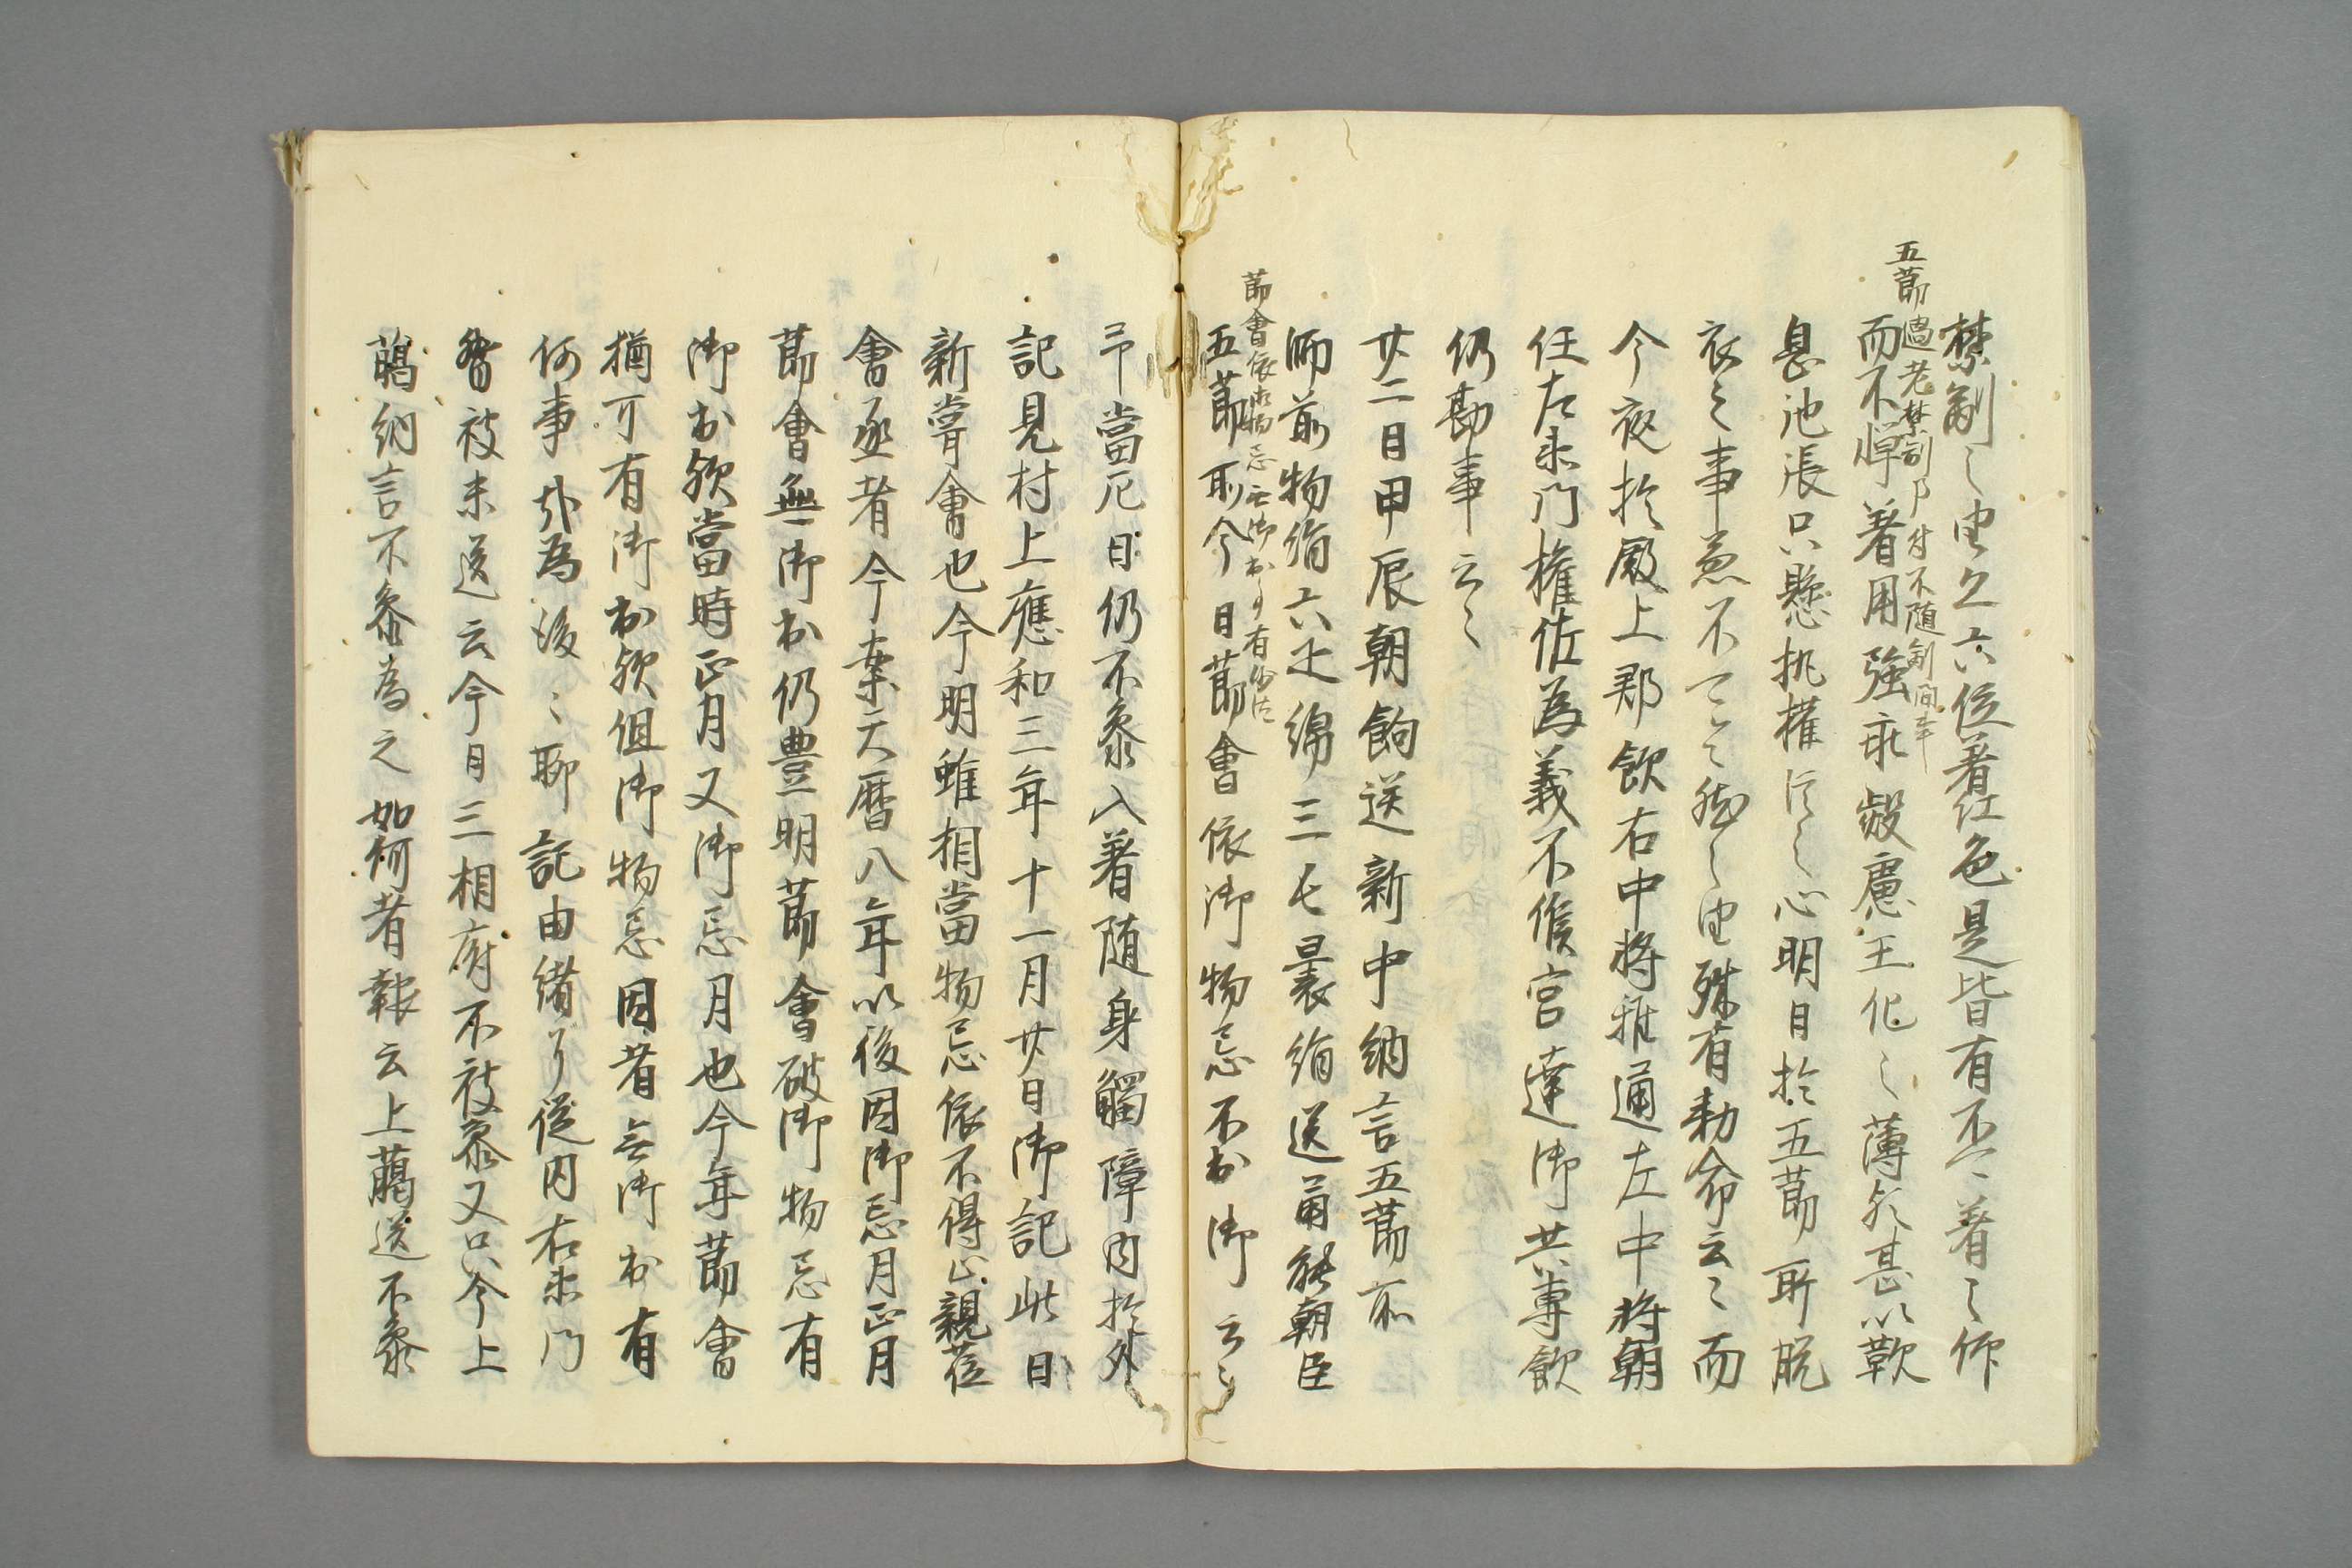 禁制之中又六位著紅色是皆有不可著之仰
五節過差禁制
不随制間事
而不憚著用強乖叡慮王化之薄尤甚以歎
息池張只懸執権臣之心明日於五節所脱
衣之事兼不可々然之中殊有勅命云々而
今夜於殿上郡飲右中将雅通左中将朝
任左衛門権佐為義不候宮達御共専飲
仍勘事云々
廿二日甲辰朝餉送新中納言五節前
師前物絹六疋綿三屯曩絹送甫能朝臣
節會依御物忌無御出可有
五節所今日節會依御物忌不出御云々
予當厄日仍不參入著随身觸障内於外
記見村上應和三年十一月廿日御記此日
新嘗會也今明雖相當物忌依不得止親莅
會丞者今案天暦八年以後因御忌月正月
節會無御出仍豊明節會破御物忌有
御出欤當時正月又御忌月也今年節會
猶可有御出欤但御物忌因者無御出有
何事欤為後々聊記由緒了從内右衛門
督被示送云今月三相府不被參又只今上
臈納言不參為之如何者報云上臈送不參